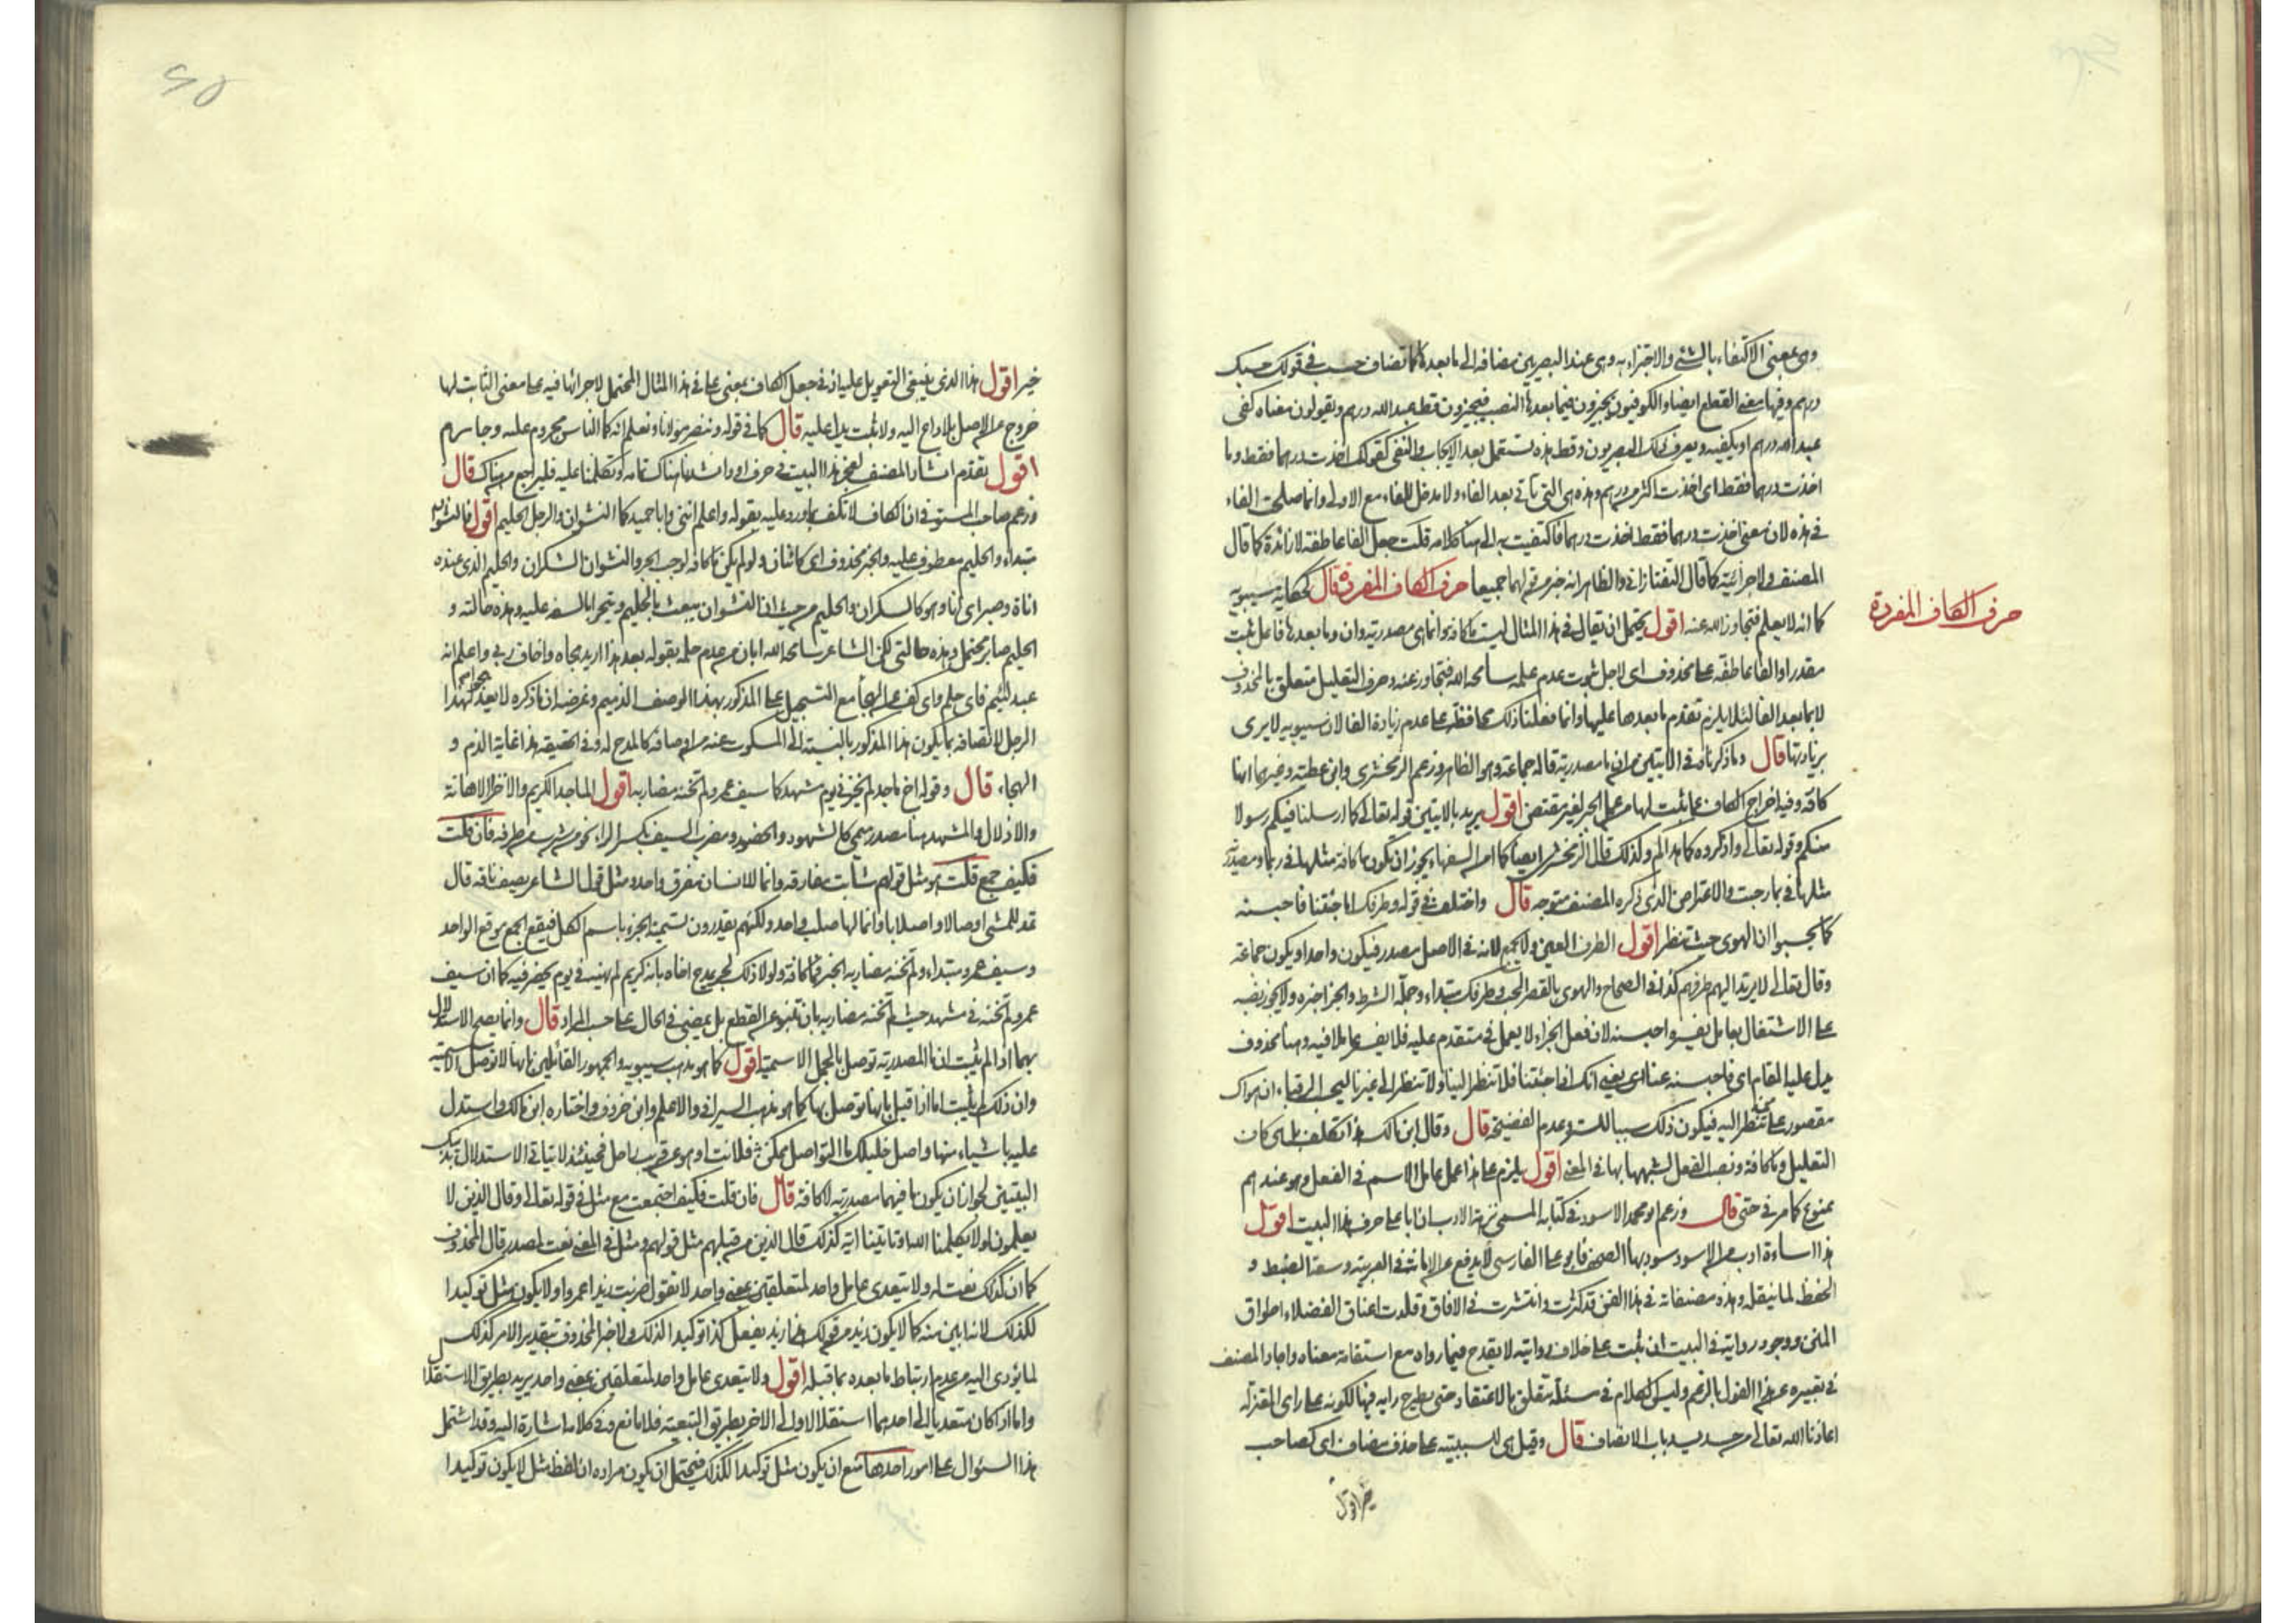 وهي بمعنى الاكتفاء بالشئ والاجتزاء به وهي عند البصريين مضافة الى ما بعدها كما تضاف حسب في قولك حسبك
درهم وفيها معنى القطع ايضا والكوفيون يجيزون فيما بعدها النصب فيجيزون قط عبد الله درهم ويقولون معناه كفى
عبد الله درهم او يكفيه ويعرف ذلك البصريون وقط هذه تستعمل بعد الايجاب والنفي كقولك اخذت درهما فقط وما
اخذت درهما فقط اى اخذت اكثر من درهم وهذه هي التي تاتي بعد الفاء ولا مدخل للفاء مع الاولى وانما صلحت الفاء
في هذه لان معنى اخذت درهما فقط اخذت درهما فاكتفيت به الى هنا كلامه قلت جعل الفا عاطفة لا زائدة كما قال
المصنف ولا جزائية كما قال التفتازاني والظاهر انه لهما جميعا حرف الكاف المفردة قال كحكاية سيبويه
حرف الكاف المفردة
كما انه لا يعلم فتجاوز الله عنه اقول يحتمل ان يقال في هذا المثال ليست ما كافة وانما هي مصدرية وان وما بعدها فاعل ثبت
مقدرا والفا عاطفة على محذوف اى لاجل ثبوت عدم علمه سامحه الله فتجاوز عنه وحرف التعليل متعلق بالمحذوف
لا بما بعد الفا لئلا يلزم تقدم ما بعدها عليها وانما فعلنا ذلك محافظة على عدم زيادة الفا لان سيبويه لا يرى
بزيادتها قال وما ذكرناه في الايتين من ان ما مصدرية قاله جماعة وهو الظاهر وزعم الزمخشرى وابن عطية وغيرهما انها
كافة وفيه اخراج الكاف عما ثبت لها من عمل الجر لغير مقتض اقول يريد بالايتين قوله تعالى كما ارسلنا فيكم رسولا
منكم وقوله تعالى واذكروه كما هداكم وكذلك قال الزمخشرى ايضا كما امن السفهاء يجوز ان تكون ما كافة مثلها في ربما ومصدرية
مثلها في بما رحبت والاعتراض الذى ذكره المصنف متوجه قال واختلف في قوله وطرفك اما جئتنا فاحبسنه
كما يحسبوا ان الهوى حيث تنظر اقول الطرف العين ولا يجمع لانه في الاصل مصدر فيكون واحدا ويكون جماعة
وقال تعالى لا يرتد اليهم طرفهم كذا في الصحاح والهوى بالقصر الحب وطرفك مبتداء وجملة الشرط والجزا خبره ولا يجوز نصبه
على الاشتغال بعامل يفسره احبسنه لان فعل الجزاء لا يعمل في متقدم عليه فلا يفسر عاملا فيه وهنا محذوف
يدل عليه المقام اى فاحبسنه عنا اى يعني انك اذا جئتنا فلا تنظر الينا ولا تنظر الى غيرنا ليحسب الرقباء ان هواك
مقصور على من تنظر اليه فيكون ذلك سببا للستر وعدم الفضيحة قال وقال ابن مالك هذا تكلف بل هي كاف
التعليل وما كافة ونصب الفعل لشبهها بها في المعنى اقول يلزم على هذا عمل عامل الاسم في الفعل وهو عندهم
ممنوع كما مر في حتى قال وزعم ابو محمد الاسود في كتابه المسمى نزهة الاديب ان ابا علي حرف هذا البيت اقول
هذا اساءة ادب من الاسود سود بها الصحف فابو على الفارسي لا يدفع عن الامانة في العربية وسعة الضبط و
الحفظ لما ينقله وهذه مصنفاته في هذا الفن قد كثرت وانتشرت في الافاق وقلدت اعناق الفضلاء اطواق
المنن ووجود رواية في البيت ان ثبت على خلاف روايته لا يقدح فيما رواه مع استقامة معناه واجاد المصنف
في تعبيره عن هذا القول بالزعم وليس الكلام في مسئلة تتعلق بالاعتقاد حتى يطرح رايه فيها لكونه على راى المعتزلة
اعاذنا الله تعالى من باب الانصاف قال وقيل هي للسببية على حذف مضاف اى كصاحب
خيرا اقول
خير اقول هذا الذى ينبغي التعويل عليه اذ في جعل الكاف بمعنى على في هذا المثال المحتمل لاجرائها فيه على معنى الثابت لها
خروج عن الاصل بلا داع اليه ولا ثبت يدل عليه قال كما في قوله وننصر مولانا ونعلم انه كما الناس مجروم عليه وجارم
اقول تقدم انشاد المصنف لعجز هذا البيت في حرف او وانشدنا هناك تمامه وتكلمنا عليه فليراجع من هناك قال
وزعم صاحب المستوفي ان الكاف لا تكف بما ورد عليه بقوله واعلم انني وابا حميد كما النشوان والرجل الحليم اقول فالنشوان
مبتداء والحليم معطوف عليه والخبر محذوف اى كائنان ولو لم تكن ما كافة لوجب الجر والنشوان السكران والحليم الذى عنده
اناة وصبر اى انا وهو كالسكران والحليم من حيث ان النشوان يعبث بالحليم ويتجرا بالسفه عليه وهذه حالته و
الحليم صابر محتمل وهذه حالتي لكن الشاعر سامحه الله ابان عن عدم حلمه بقوله بعد هذا اريد هجاه واخاف ربي واعلم انه
عبد لئيم فاى حلم واى كف عن الهجا مع التسجيل على المذكور بهذا الوصف الذميم وغرضه ان ما ذكره لا يعد هجوا لهذا
الرجل لاتصافه بما يكون هذا المذكور بالنسبة الى المسكوت عنه من اوصافه كالمدح له وفي الحقيقة هذا غاية الذم و
الهجاء قال وقوله اخ ماجد لم يخزني يوم مشهد كما سيف عمرو لم تخنه مضاربه اقول الماجد الكريم والاخزا الاهانة
والاذلال والمشهد هنا مصدر ميمي كالشهود والحضور ومضرب السيف بكسر الراء نحو من شبر من طرفه فان قلت
فكيف جمع قلت هو مثل قولهم شابت مفارقه وانما للانسان مفرق واحد ومثل قول الشاعر يصف ناقة قال
تمد للمشي اوصالا واصلابا وانما لها صلب واحد ولكنهم يقدرون تسمية الجزء باسم الكل فيقع الجمع موقع الواحد
وسيف عمرو مبتداء ولم تخنه مضاربه الخبر فما كافة ولولا ذلك لجر يمدح اخاه بانه كريم لم يهنه في يوم يحضر فيه كما ان سيف
عمرو لم تخنه في مشهد حيث لم تخنه مضاربه بان تنبو عن القطع بل يمضي في الحال على حسب المراد قال وانما يصح الاستدلال
بهما اذا لم يثبت ان ما المصدرية توصل بالجمل الاسمية اقول كما هو مذهب سيبويه والجمهور القائلين بانها لا توصل بالاسمية
وان ذلك لم يثبت اما اذا قيل بانها توصل بها كما هو مذهب السيرافي والاعلم وابن خروف واختاره ابن مالك واستدل
عليه باشياء منها واصل خليلك ما التواصل ممكن فلانت او هو عن قريب راحل فحينئذ لا يتاتى الاستدلال بذينك
البيتين لجواز ان يكون ما فيهما مصدرية لا كافة قال فان قلت فكيف اجتمعت مع مثل في قوله تعالى وقال الذين لا
يعلمون لولا يكلمنا الله او تاتينا اية كذلك قال الذين من قبلهم مثل قولهم ومثل في المعنى نعت لمصدر قال المحذوف
كما ان كذلك نعت له ولا يتعدى عامل واحد لمتعلقين بمعنى واحد لا تقول ضربت زيدا عمروا ولا يكون مثل توكيدا
لكذلك لانه ابين منه كما لا يكون زيد من قولك هذا زيد يفعل كذا توكيدا لذلك ولا خبرا لمحذوف بتقدير الامر كذلك
لما يؤدى اليه من عدم ارتباط ما بعده بما قبله اقول ولا يتعدى عامل واحد لمتعلقين بمعنى واحد يريد بطريق الاستقلال
واما اذا كان متعديا الى احدهما استقلالا والى الاخر بطريق التبعية فلا مانع وفي كلامه اشارة اليه وقد اشتمل
هذا السئوال على امور احدها منع ان يكون مثل توكيدا لكذلك فيحتمل ان يكون مراده ان لفظ مثل لا يكون توكيدا